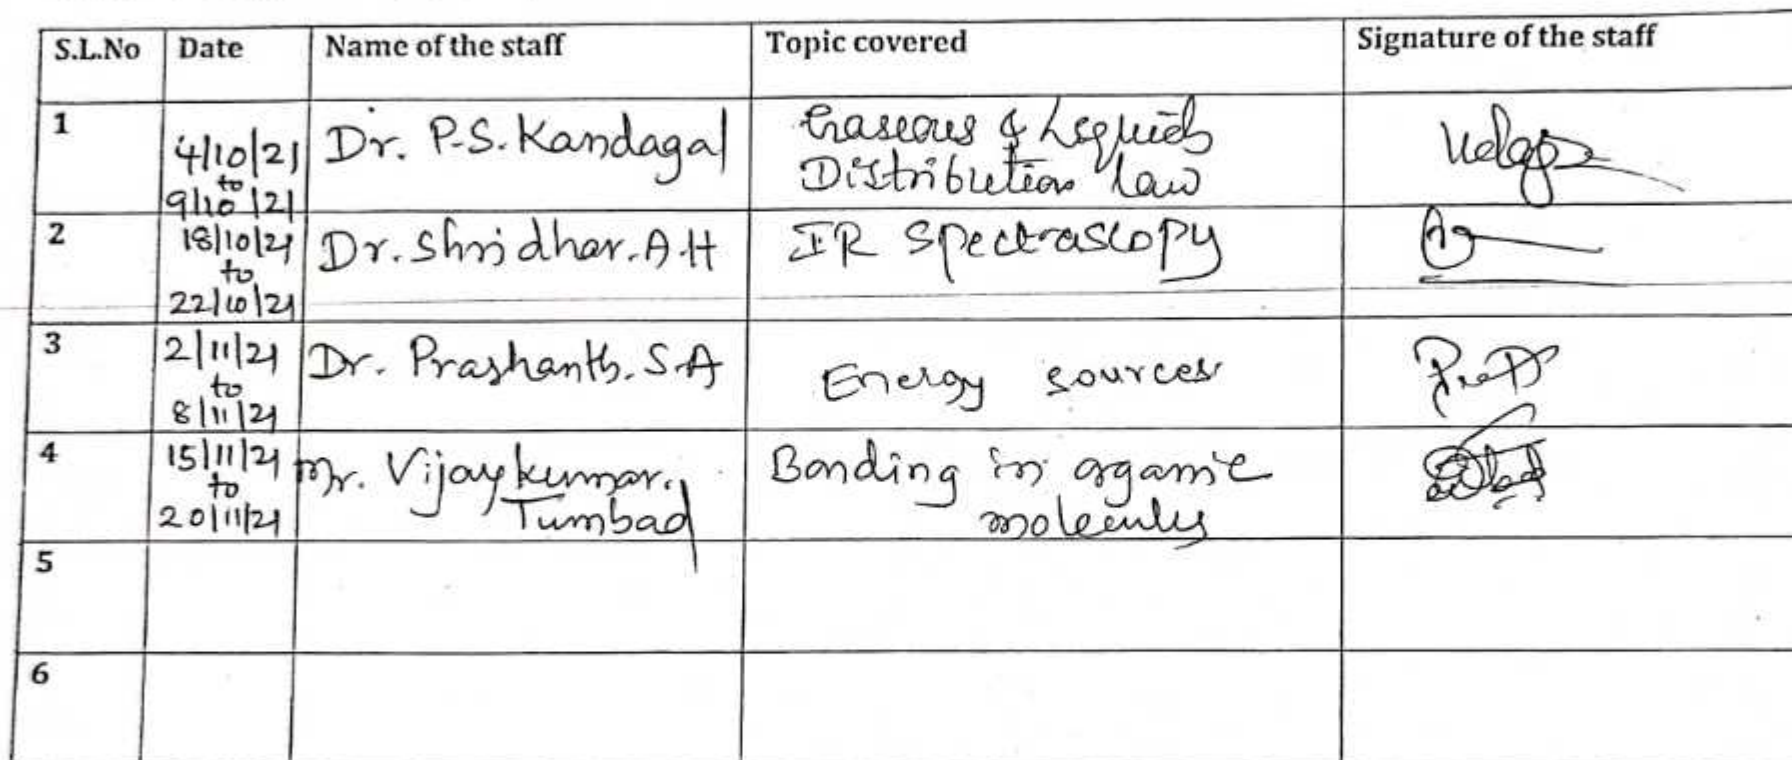 S.L.No Date Name of the staff Topic covered Signature of the staff
1 4/10/21 to 9/10/21 Dr. P.S. Kandagal Gaseous & Liquids Distribution law
2 18/10/21 to 22/10/21 Dr. Shridhar. A.H IR Spectroscopy
3 2/11/21 to 8/11/21 Dr. Prashanth. S.A Energy sources
4 15/11/21 to 20/11/21 Mr. Vijaykumar. Tumbad Bonding in organic molecules
5
6